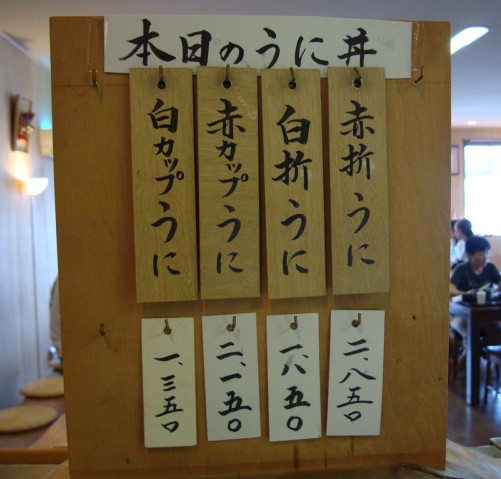 本日のうに丼
赤折うに
白折うに
赤カップうに
白カップうに
二、八五〇
一、八五〇
二、一五〇
一、三五〇